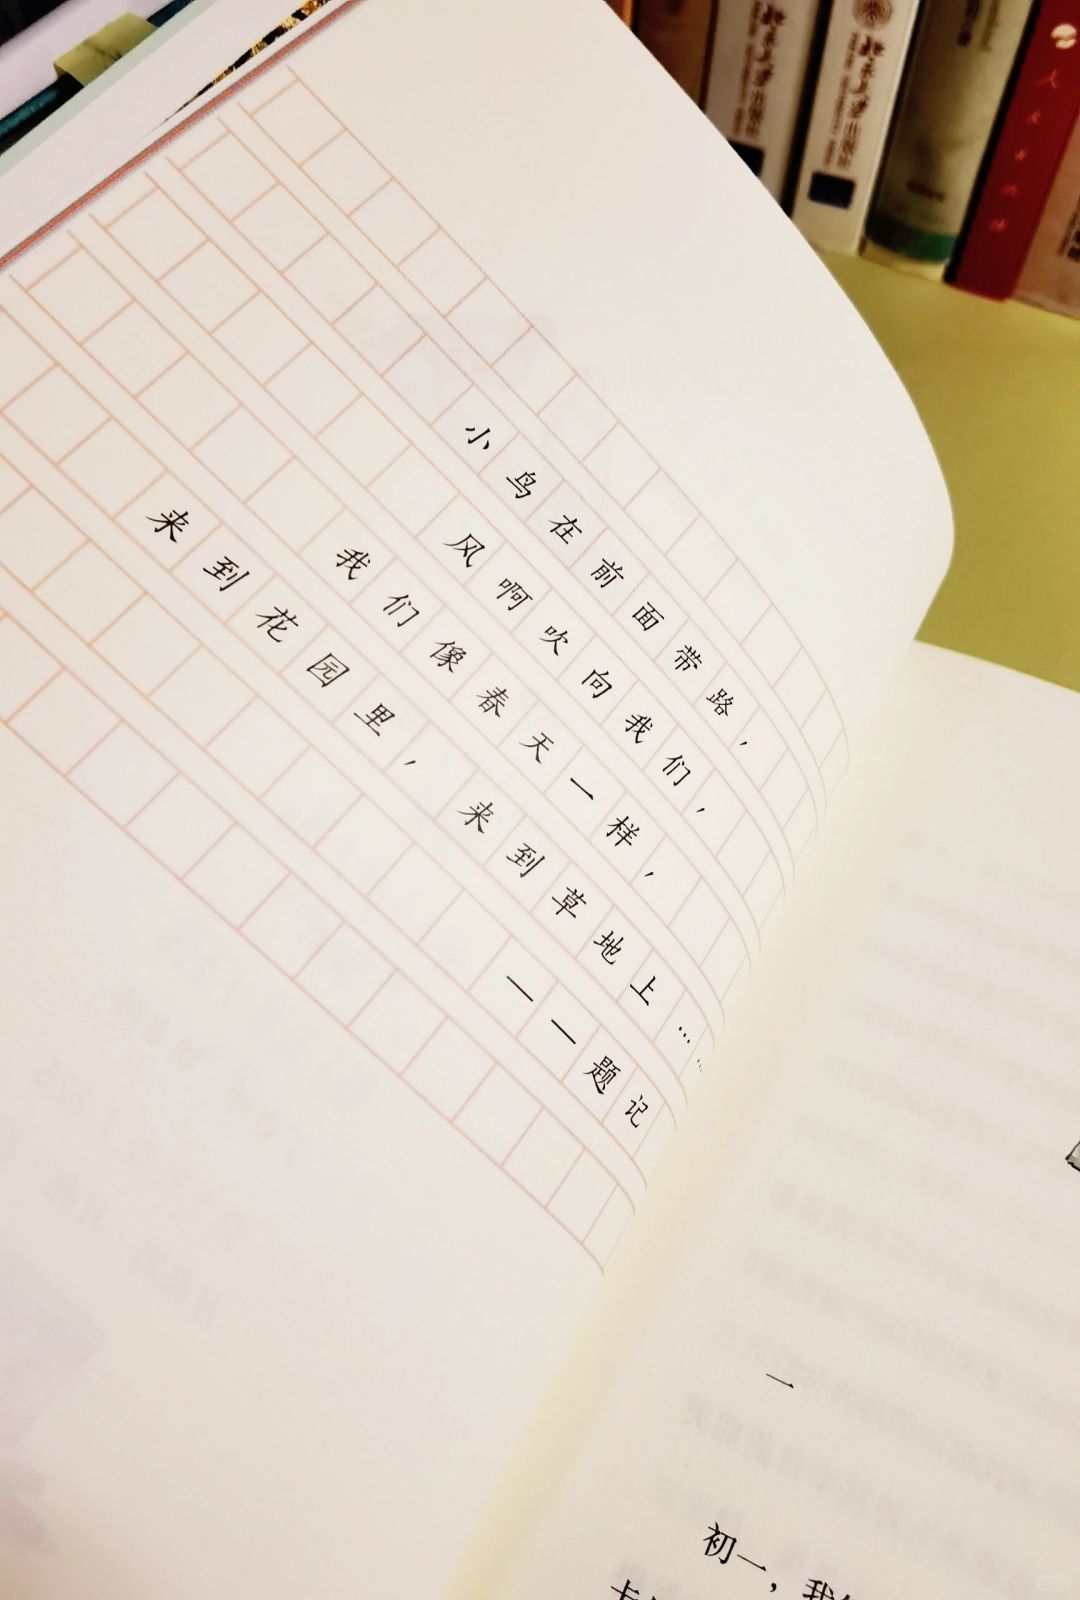 小鸟在前面带路，
风啊吹向我们，
我们像春天一样，
来到花园里，来到草地上……
——题记
一
初一，我